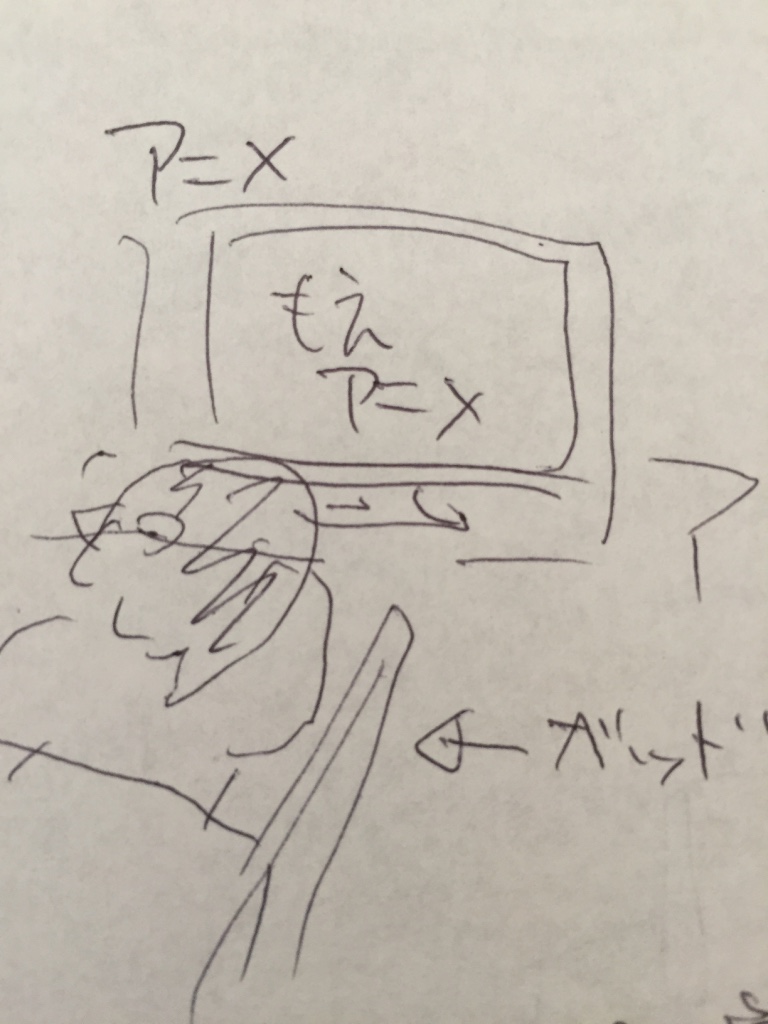 アニメ
もえ
アニメ
ベッド